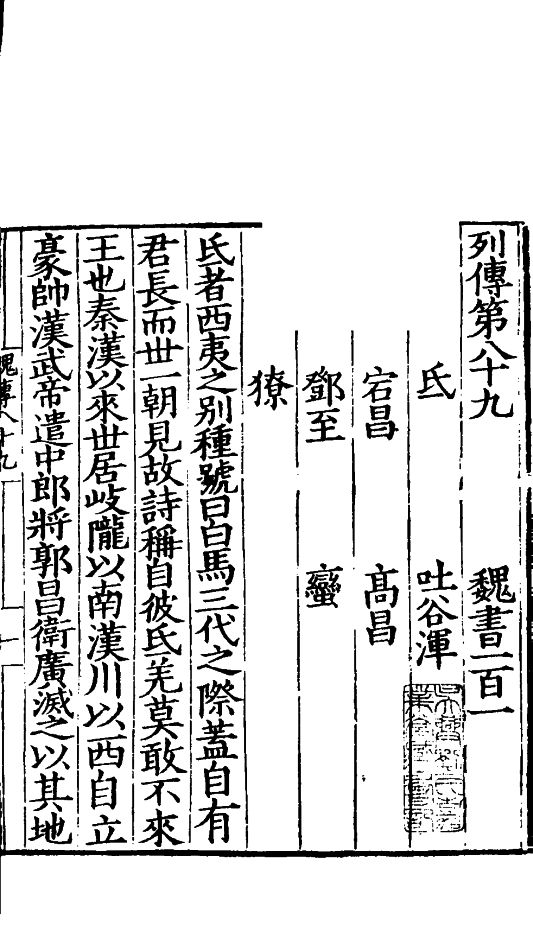 列傳第八十九　魏書一百一
氐　吐谷渾
宕昌　高昌
鄧至　蠻
獠
氐者西夷之别種號曰白馬三代之際蓋自有
君長而世一朝見故詩稱自彼氐羌莫敢不來
王也秦漢以來世居岐隴以南漢川以西自立
豪帥漢武帝遣中郎將郭昌衛廣滅之以其地
魏傳八十九
一